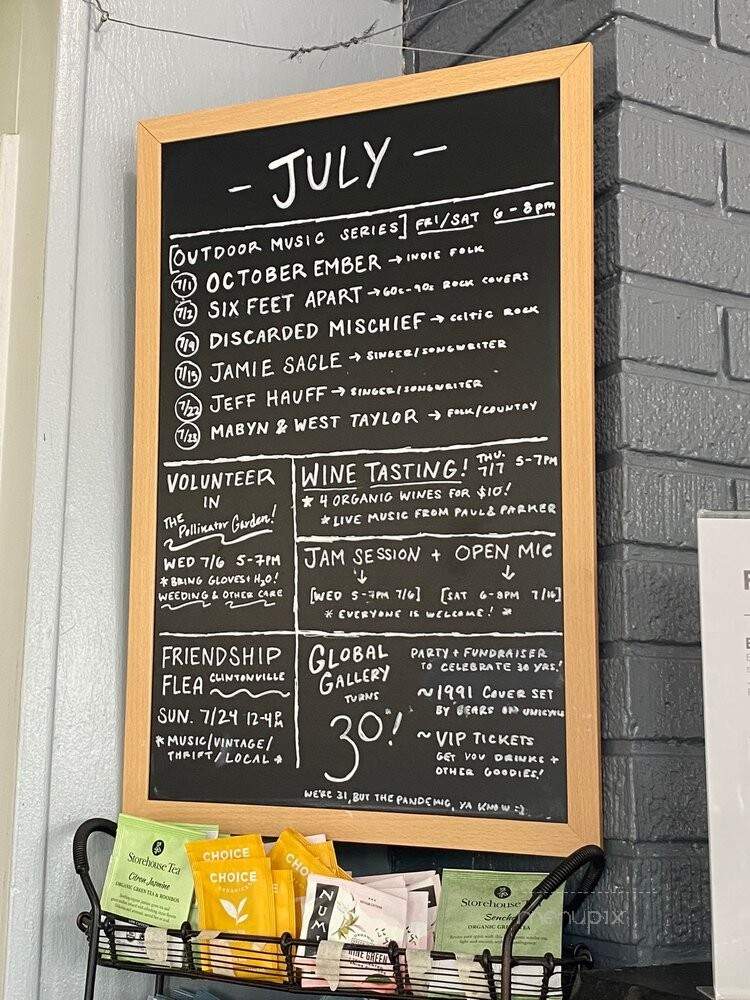 - JULY -
[OUTDOOR MUSIC SERIES] FRI/SAT 6-8pm
7/1 OCTOBER EMBER → INDIE FOLK
7/2 SIX FEET APART → 60s-90s ROCK COVERS
7/9 DISCARDED MISCHIEF → CELTIC ROCK
7/15 JAMIE SAGLE → SINGER/SONGWRITER
7/22 JEFF HAUFF → SINGER/SONGWRITER
7/23 MABYN & WEST TAYLOR → FOLK/COUNTRY
VOLUNTEER
IN
THE Pollinator Garden!
WED 7/6 5-7PM
*BRING GLOVES + H2O!
WEEDING & OTHER CARE
WINE TASTING! THU. 7/7 5-7PM
* 4 ORGANIC WINES FOR $10!
* LIVE MUSIC FROM PAUL & PARKER
JAM SESSION + OPEN MIC
↓ ↓
[WED 5-7PM 7/6] [SAT 6-8PM 7/16]
* EVERYONE IS WELCOME! *
FRIENDSHIP
FLEA CLINTONVILLE
SUN. 7/24 12-4PM
*MUSIC/VINTAGE/
THRIFT/LOCAL*
GLOBAL
GALLERY
TURNS
30!
PARTY + FUNDRAISER
TO CELEBRATE 30 YRS!
~1991 COVER SET
BY BEARS ON UNICYCLES
~ VIP TICKETS
GET YOU DRINKS +
OTHER GOODIES!
WE'RE 31, BUT THE PANDEMIC, YA KNOW :)
Storehouse Tea
Citron Jasmine
ORGANIC GREEN TEA & ROOIBOS
CHOICE
CHOICE
ORGANICS
CHO
NUMI
Storehouse
Sencha
ORGANIC GREEN TEA